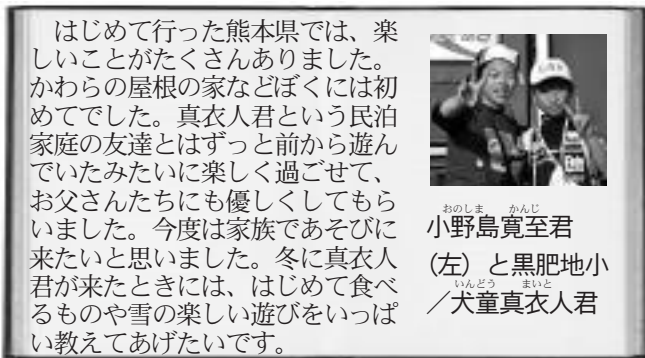 はじめて行った熊本県では、楽
しいことがたくさんありました。
かわらの屋根の家などぼくには初
めてでした。真衣人君という民泊
家庭の友達とはずっと前から遊ん
でいたみたいに楽しく過ごせて、
お父さんたちにも優しくしてもら
いました。今度は家族であそびに
来たいと思いました。冬に真衣人
君が来たときには、はじめて食べ
るものや雪の楽しい遊びをいっぱ
い教えてあげたいです。
おのしま かんじ
小野島寛至君
(左)と黒肥地小
いんどう まいと
/犬童真衣人君